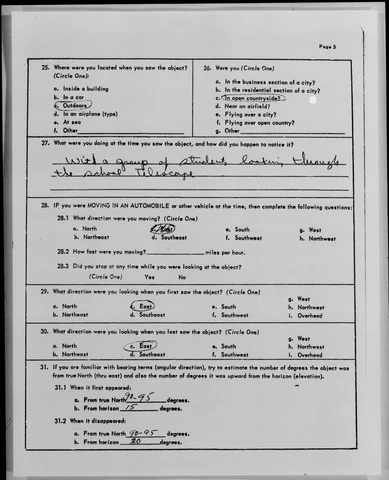 Page 5
25. Where were you located when you saw the object?
(Circle One):
a. Inside a building
b. In a car
c. Outdoors
d. In an airplane (type)
e. At sea
f. Other
26. Were you (Circle One)
a. In the business section of a city?
b. In the residential section of a city?
c. In open countryside?
d. Near an airfield?
e. Flying over a city?
f. Flying over open country?
g. Other
27. What were you doing at the time you saw the object, and how did you happen to notice it?
With a group of students looking through
the school Telescope
28. IF you were MOVING IN AN AUTOMOBILE or other vehicle at the time, then complete the following questions:
28.1 What direction were you moving? (Circle One)
a. North
b. Northeast
c. East
d. Southeast
e. South
f. Southwest
g. West
h. Northwest
28.2 How fast were you moving? miles per hour.
28.3 Did you stop at any time while you were looking at the object?
(Circle One) Yes No
29. What direction were you looking when you first saw the object? (Circle One)
a. North
b. Northeast
c. East
d. Southeast
e. South
f. Southwest
g. West
h. Northwest
i. Overhead
30. What direction were you looking when you last saw the object? (Circle One)
a. North
b. Northeast
c. East
d. Southeast
e. South
f. Southwest
g. West
h. Northwest
i. Overhead
31. If you are familiar with bearing terms (angular direction), try to estimate the number of degrees the object was
from true North (true east) and also the number of degrees it was upward from the horizon (elevation).
31.1 When it first appeared:
a. From true North 90-95 degrees.
b. From horizon 15 degrees.
31.2 When it disappeared:
a. From true North 90-95 degrees.
b. From horizon 20 degrees.